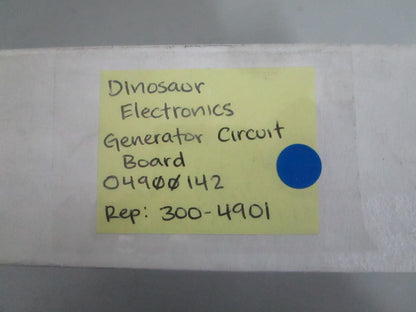 Dinosaur
Electronics
Generator Circuit
Board
04900142
Rep: 300-4901